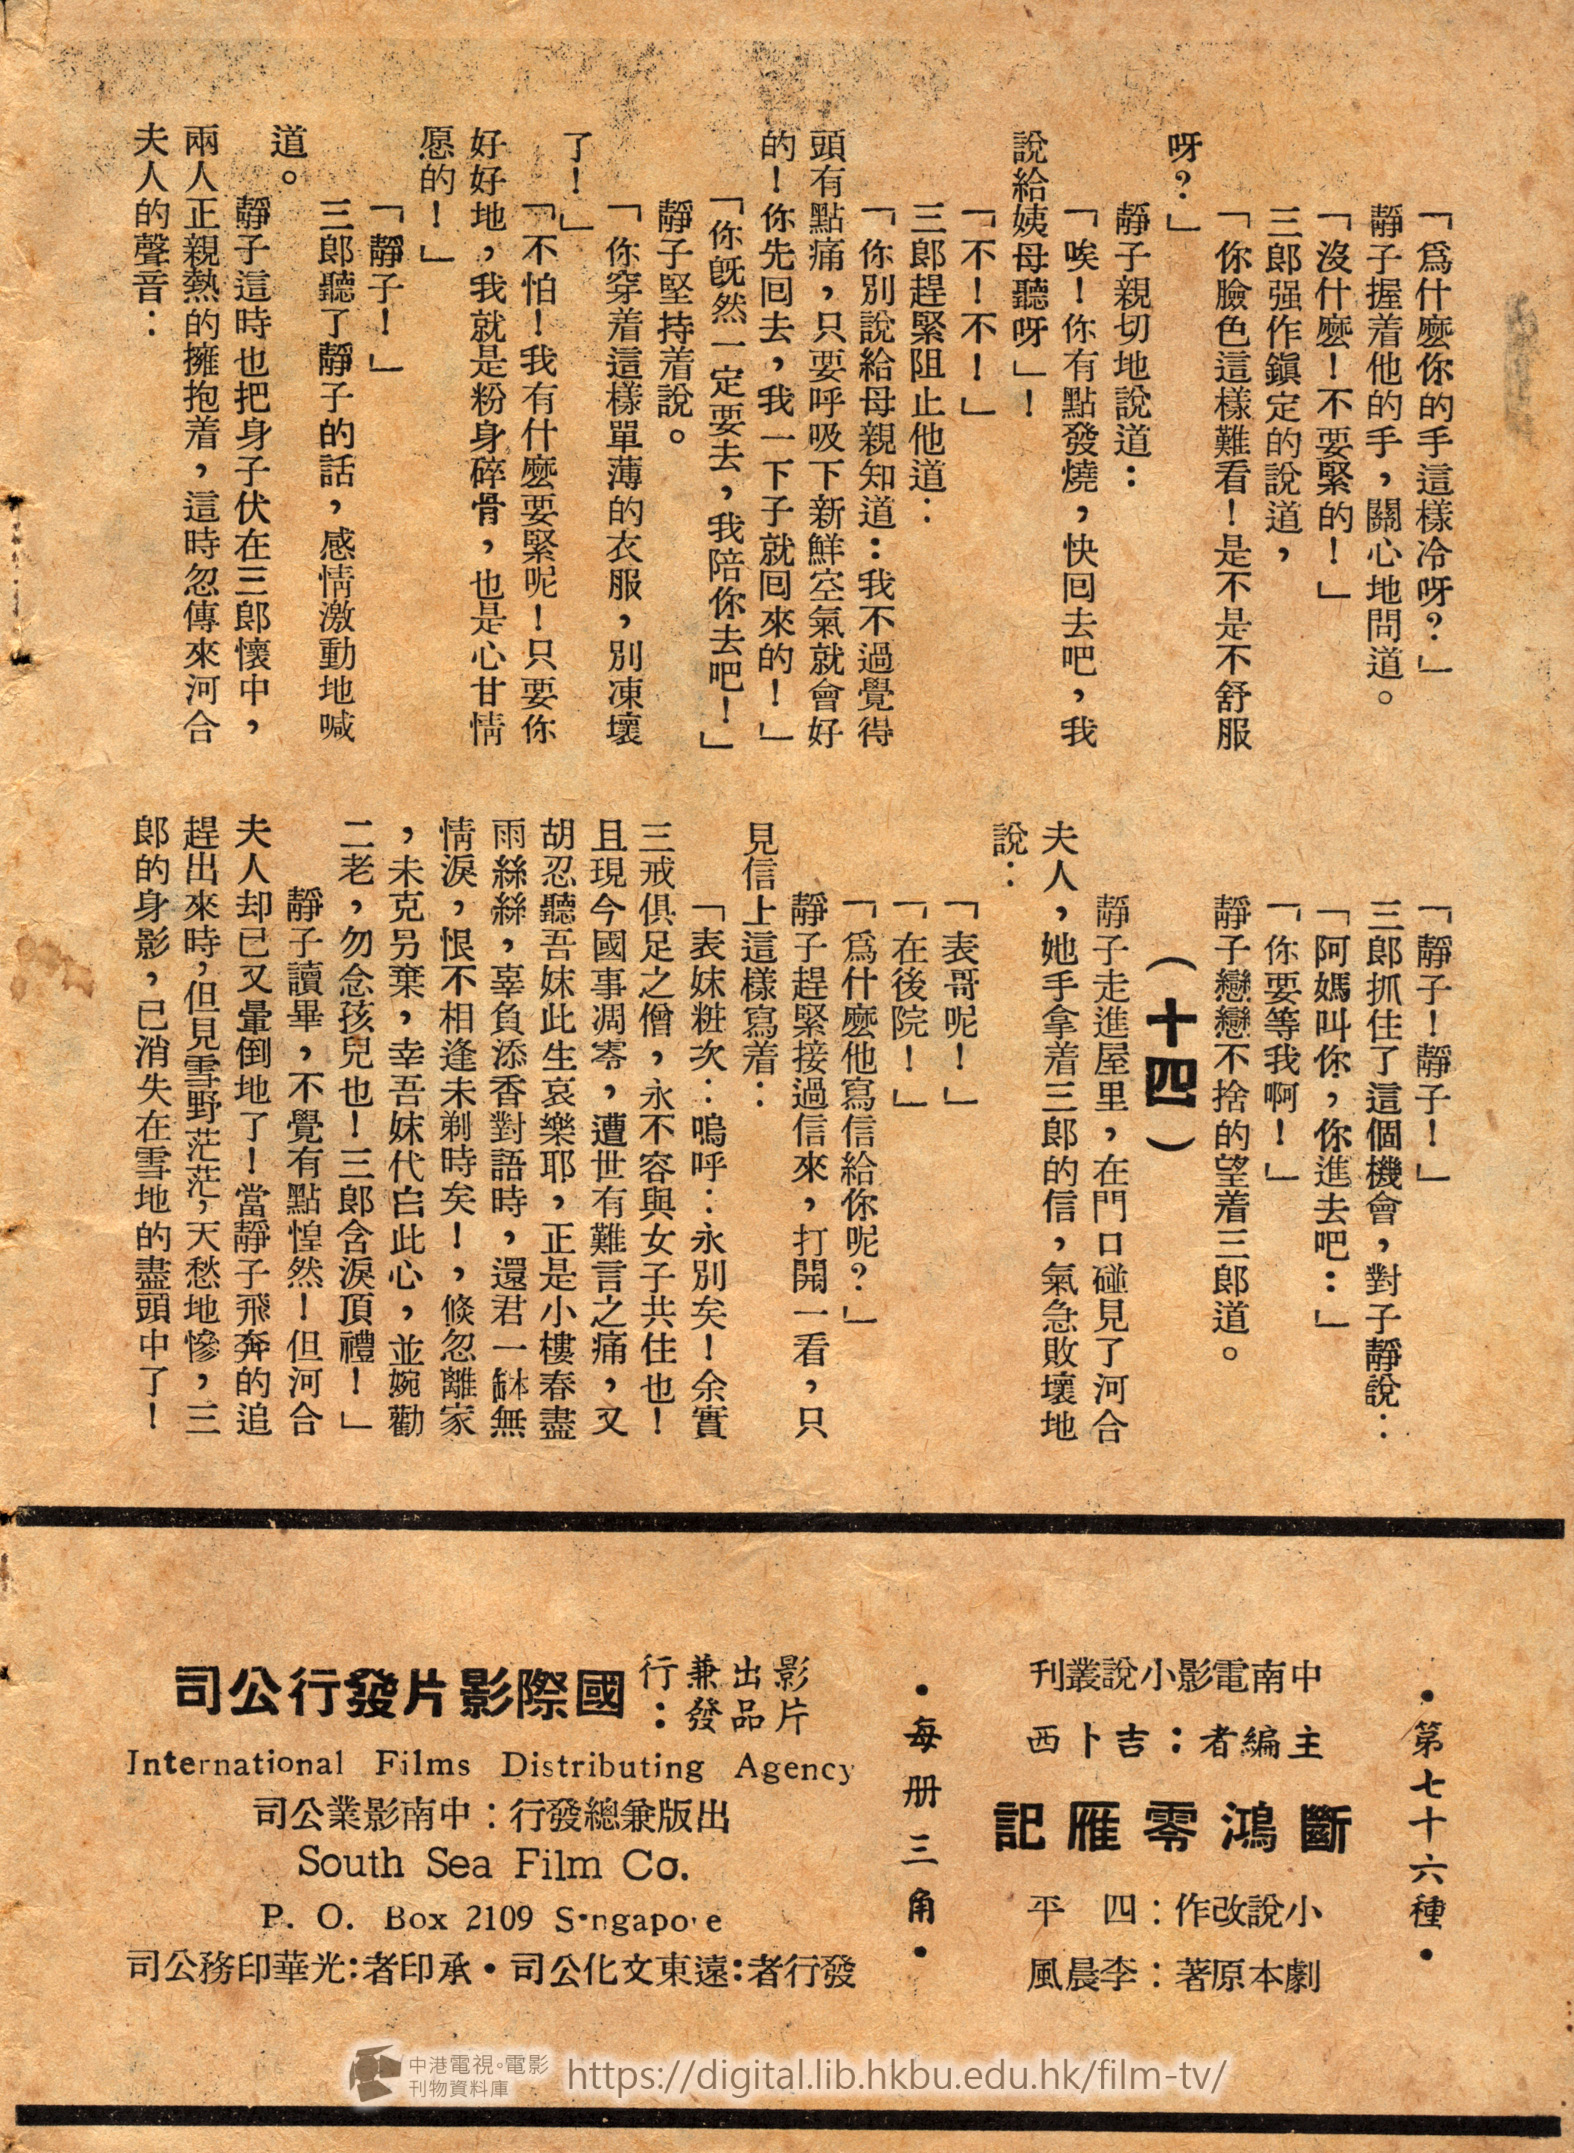 「爲什麽你的手這樣冷呀?」
靜子握着他的手，關心地問道。
「沒什麽！不要緊的！」
三郎强作鎭定的說道，
「你臉色這樣難看！是不是不舒服
呀?」
靜子親切地說道：
「唉！你有點發燒，快囘去吧，我
說給姨母聽呀」！
「不！不！」
三郎趕緊阻止他道：
「你別說給母親知道：我不過覺得
頭有點痛，只要呼吸下新鮮空氣就會好
的！你先囘去，我一下子就囘來的！」
「你旣然一定要去，我陪你去吧！」
靜子堅持着說。
「你穿着這樣單薄的衣服，別凍壞
了！」
「不怕！我有什麽要緊呢！只要你
好好地，我就是粉身碎骨，也是心甘情
愿的！」
「靜子！」
三郎聽了靜子的話，感情激動地喊
道。
靜子這時也把身子伏在三郎懷中，
兩人正親熱的擁抱着，這時忽傳來河合
夫人的聲音：
「靜子！靜子！」
三郎抓住了這個機會，對子靜說：
「阿媽叫你，你進去吧：」
「你要等我啊！」
靜子戀戀不捨的望着三郎道。
（十四）
靜子走進屋里，在門口碰見了河合
夫人，她手拿着三郎的信，氣急敗壞地
說：
「表哥呢！」
「在後院！」
「爲什麽他寫信給你呢?」
靜子趕緊接過信來，打開一看，只
見信上這樣寫着：
「表妹粧次：嗚呼：永別矣！余實
三戒俱足之僧，永不容與女子共住也！
且現今國事凋零，遭世有難言之痛，又
胡忍聽吾妹此生哀樂耶，正是小樓春盡
雨絲絲，辜負添香對語時，還君一缽無
情淚，恨不相逢未剃時矣！，倏忽離家
，未克另棄，幸吾妹代白此心，並婉勸
二老，勿念孩兒也！三郎含淚頂禮！」
靜子讀畢，不覺有點惶然！但河合
夫人却已又暈倒地了！當靜子飛奔的追
趕出來時，但見雪野茫茫，天愁地慘，三
郎的身影，已消失在雪地的盡頭中了！
•第七十六種•
中南電影小說叢刊
主編者：吉卜西
斷鴻零雁記
小說改作：四平
劇本原著：李晨風
•每册三角•
影片出品兼發行：
國際影片發行公司
International Films Distributing Agency
出版兼總發行：中南影業公司
South Sea Film Co.
P. O. Box 2109 Singapore
發行者：遠東文化公司•承印者：光華印務公司
中港電視•電影
刊物資料庫
https://digital.lib.hkbu.edu.hk/film-tv/